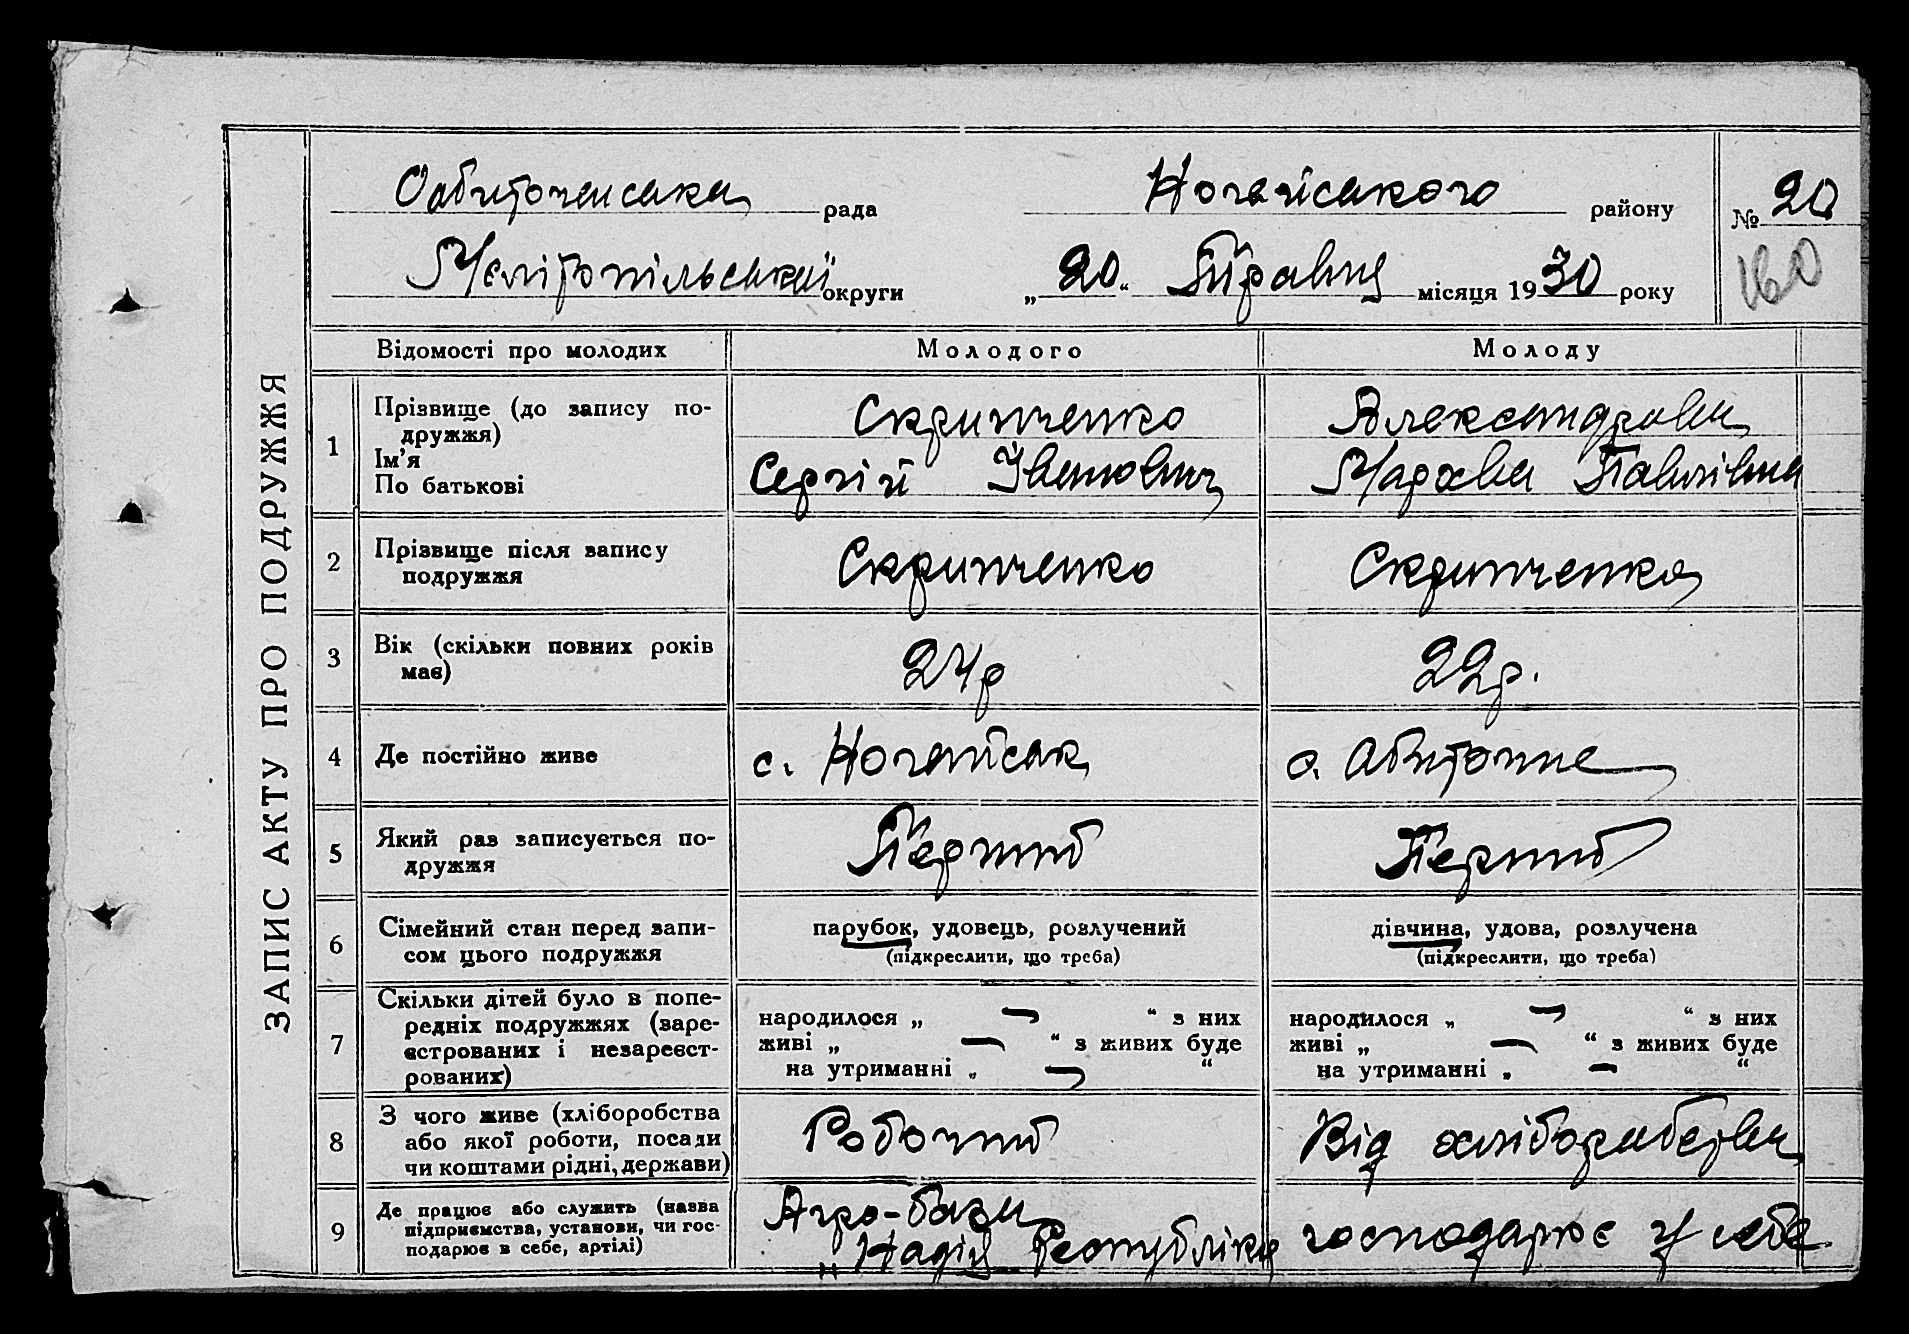 ЗАПИС АКТУ ПРО ПОДРУЖЖЯ
Обиточенська рада Ногайського району № 20
Мелітопільської округи „20“ Травня місяця 1930 року
160
Відомості про молодих Молодого Молоду
1 Прізвище (до запису по-
дружжя)
Ім'я
По батькові
Скрипченко
Сергій Іванович
Александрова
Мархва Павлівна
2 Прізвище після запису
подружжя
Скрипченко
Скрипченко
3 Вік (скільки повних років
має)
24р
22р.
4 Де постійно живе
с. Ногайськ
с. Обиточне
5 Який раз записується по-
дружжя
Перший
Перший
6 Сімейний стан перед запи-
сом цього подружжя
парубок, удовець, розлучений
(підкреслити, що треба)
дівчина, удова, розлучена
(підкреслити, що треба)
7 Скільки дітей було в попе-
редніх подружжях (заре-
єстрованих і незареєст-
рованих)
народилося „ — “ з них
живі „ — “ з живих буде
на утриманні „ — “
народилося „ — “ з них
живі „ — “ з живих буде
на утриманні „ — “
8 З чого живе (хліборобства
або якої роботи, посади
чи коштами рідні, держави)
Робочий
Від хліборобства
9 Де працює або служить (назва
підприємства, установи, чи гос-
подарює в себе, артілі)
Агро-база
„Надія Республіки
господарює у себе